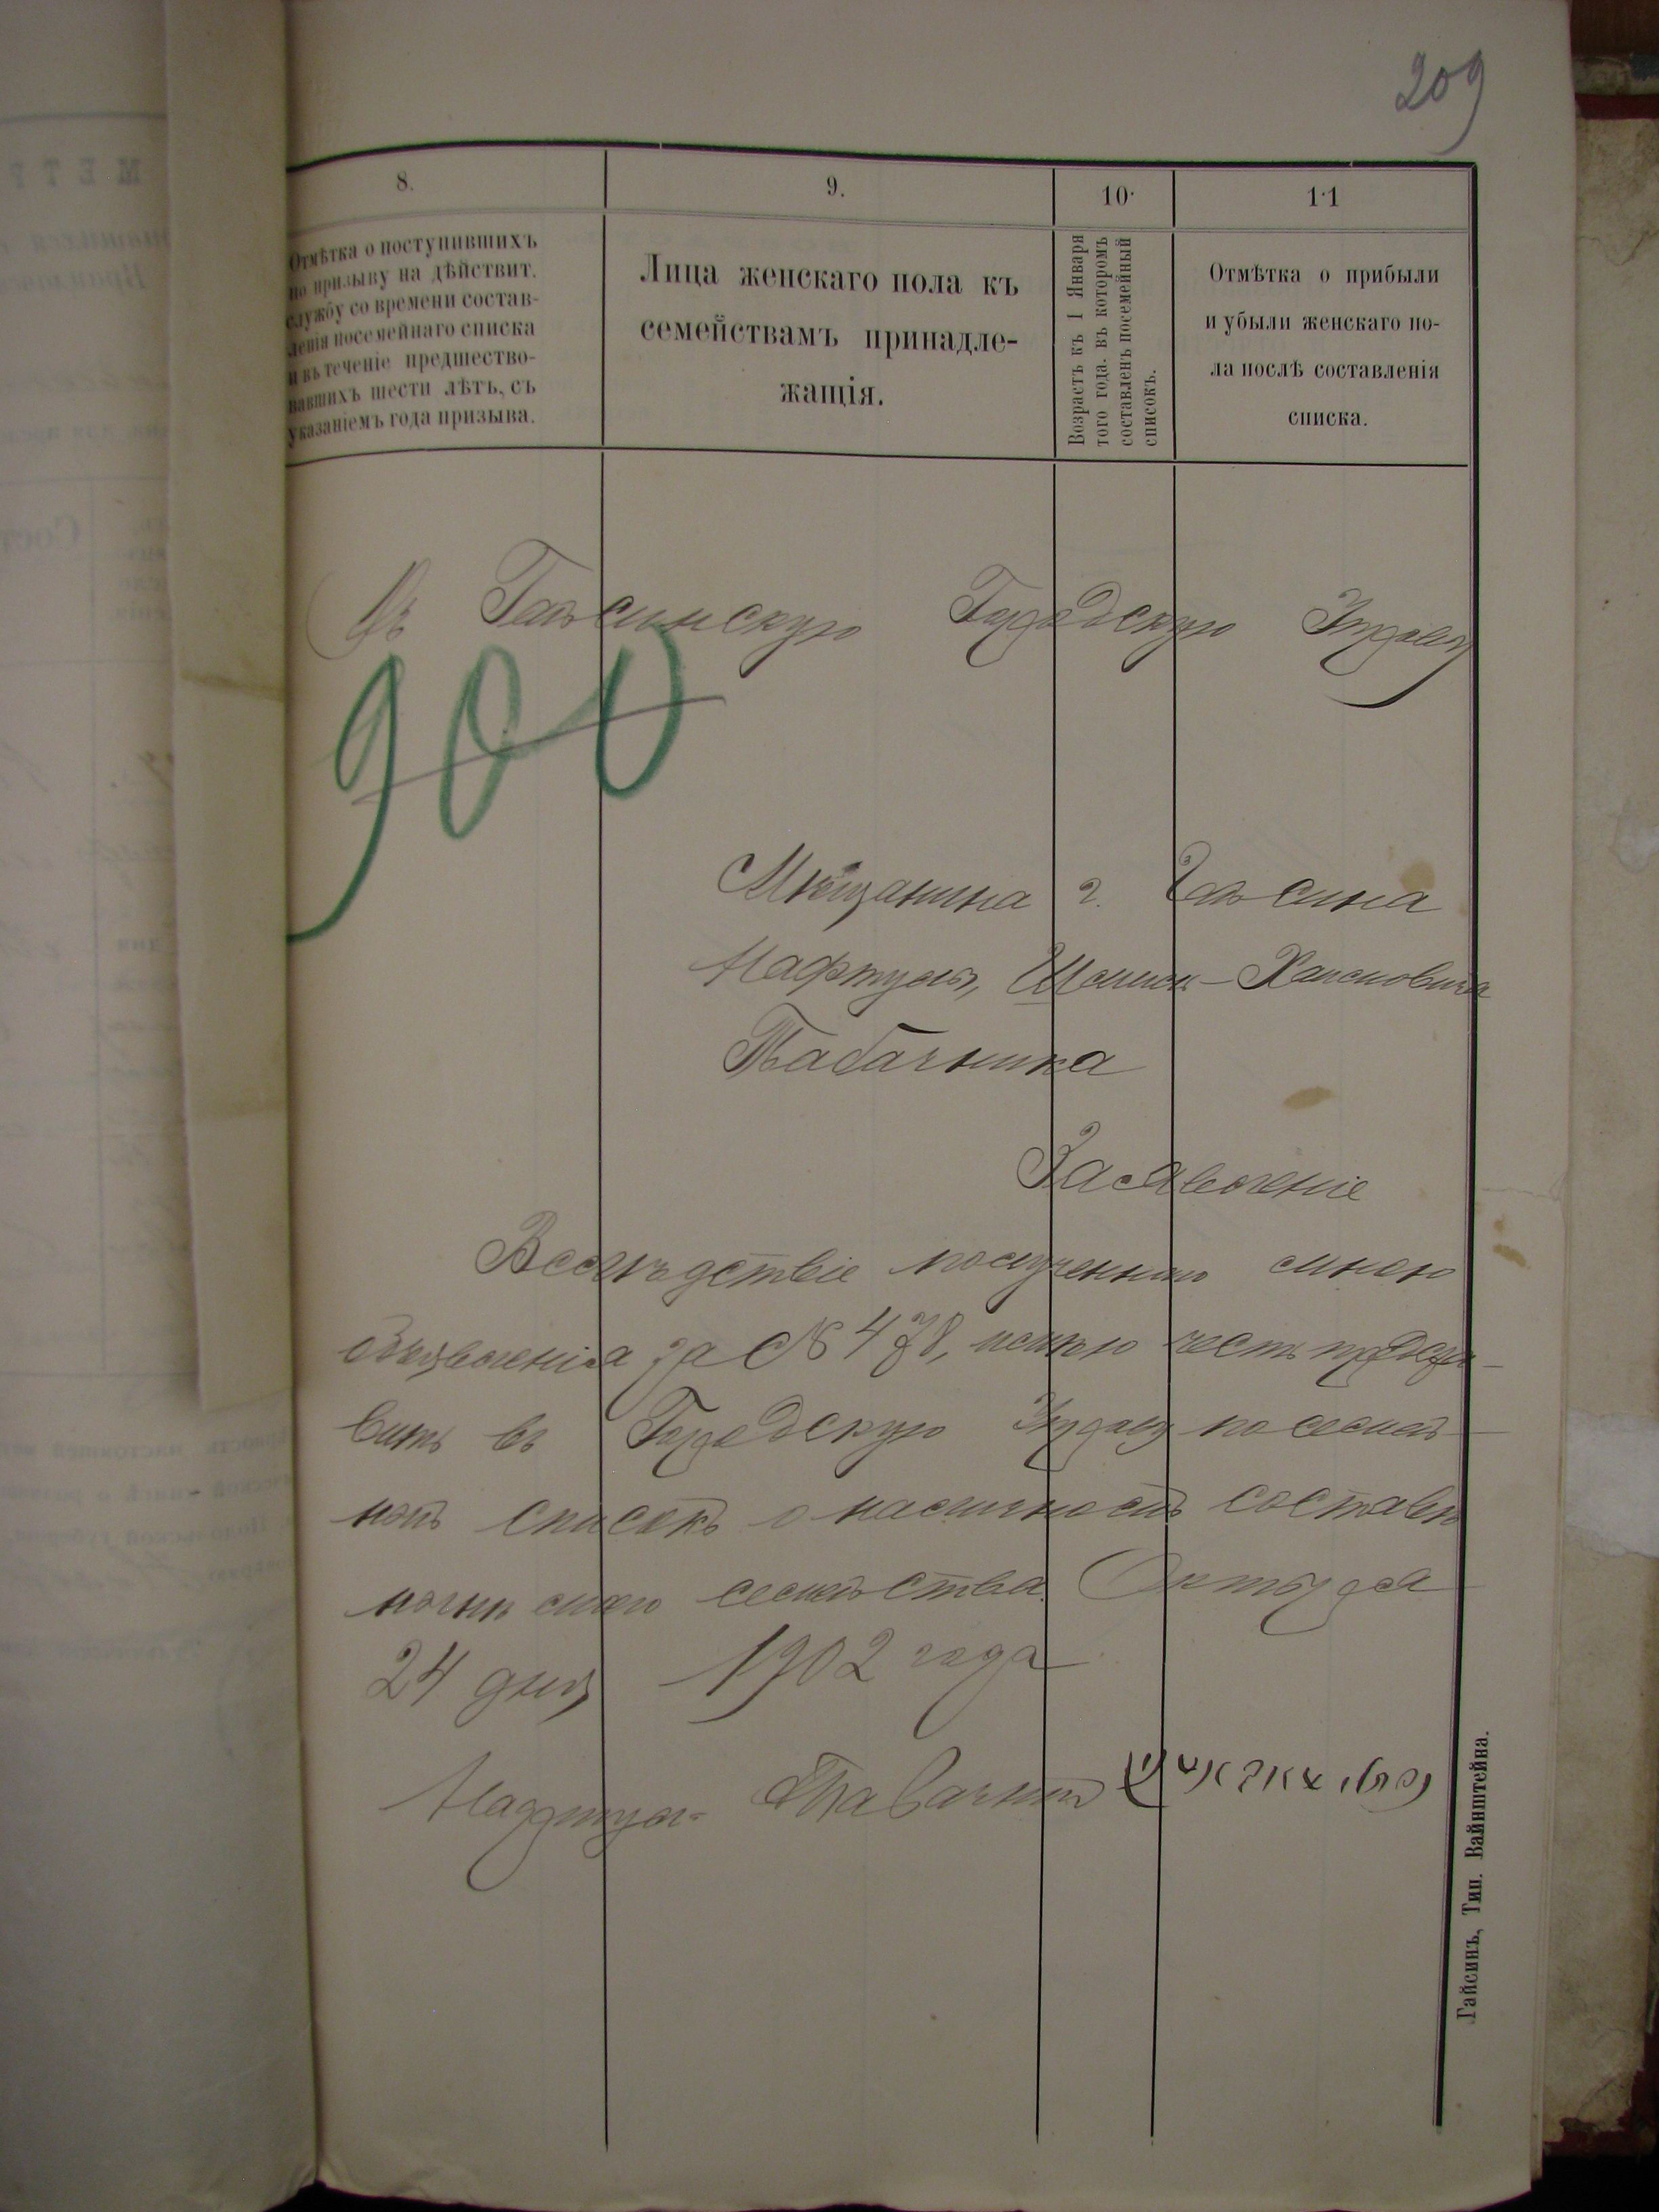 209
8.
9.
10.
11
Отмѣтка о поступившихъ
по призыву на дѣйствит.
службу со времени состав-
ленія посемейнаго списка
и въ теченіе предшество-
вавшихъ шести лѣтъ, съ
указаніемъ года призыва.
Лица женскаго пола къ
семействамъ принадле-
жащія.
Возрастъ къ 1 Января
того года. въ которомъ
составленъ посемейный
списокъ.
Отмѣтка о прибыли
и убыли женскаго по-
ла послѣ составленія
списка.
Въ Гайсинскую Городскую Управу
900
Мѣщанина г. Гайсина
Нафтула, Хаимовича
Табачника
Заявленіе
Вслѣдствіе полученнаго мною
объявленія за № 478, имѣю честь предста-
вить въ Городскую Управу посемей-
ной списокъ о наличности состава
моего семейства. Октября
24 дня 1902 года
Нафтул Табачник
Гайсинъ, Тип. Вайнштейна.